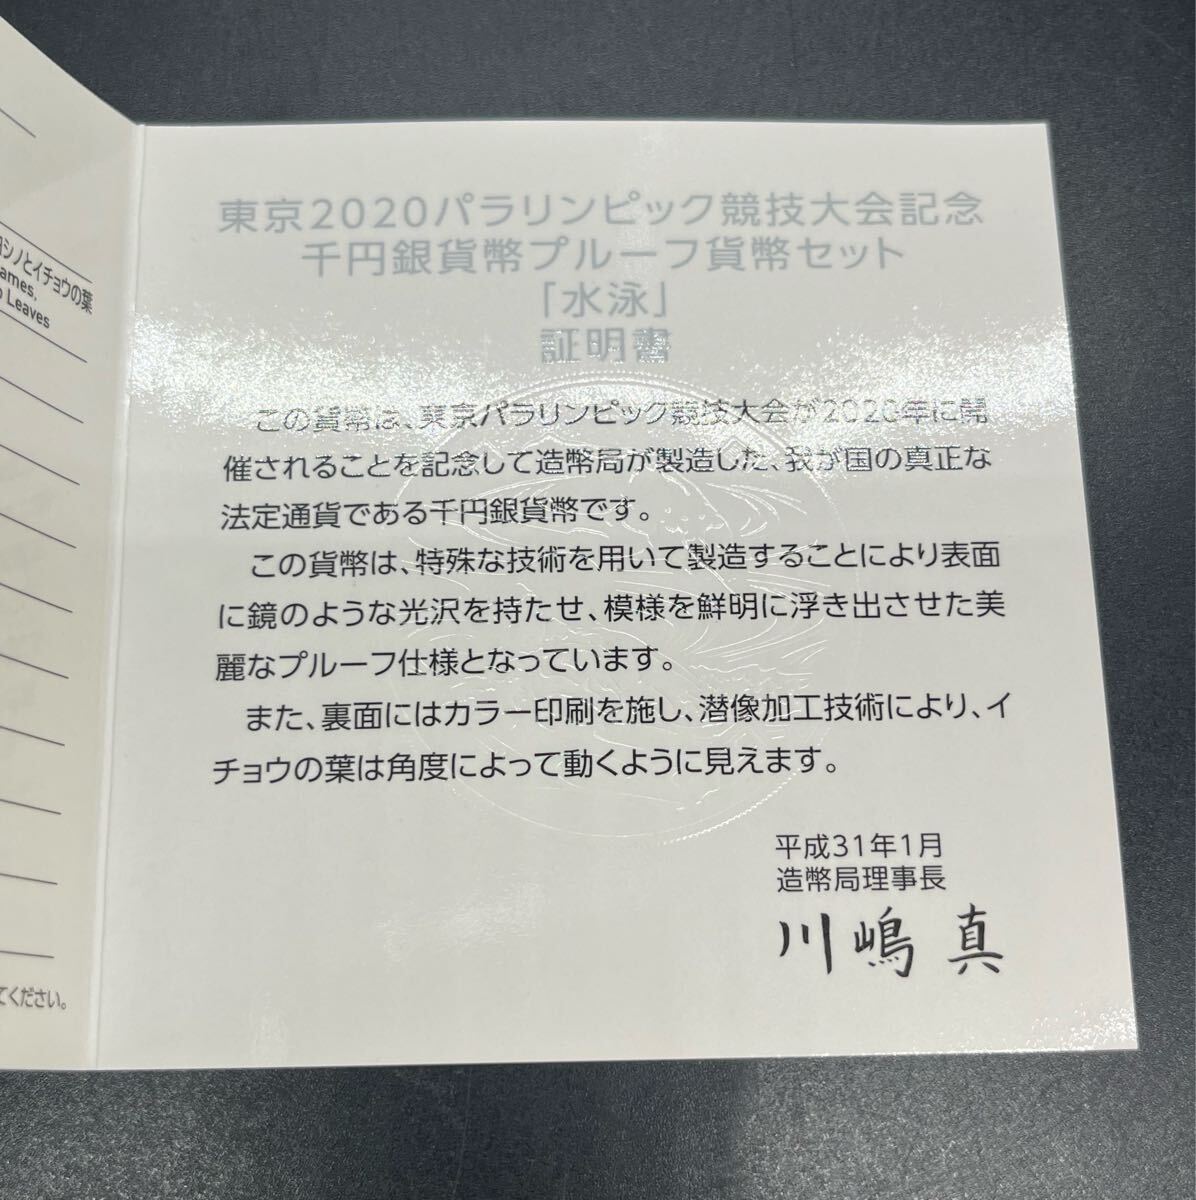 シノとイチョウの葉
ames,
Leaves
てください。
東京2020パラリンピック競技大会記念
千円銀貨幣プルーフ貨幣セット
「水泳」
証明書
この貨幣は、東京パラリンピック競技大会が2020年に開
催されることを記念して造幣局が製造した、我が国の真正な
法定通貨である千円銀貨幣です。
この貨幣は、特殊な技術を用いて製造することにより表面
に鏡のような光沢を持たせ、模様を鮮明に浮き出させた美
麗なプルーフ仕様となっています。
また、裏面にはカラー印刷を施し、潜像加工技術により、イ
チョウの葉は角度によって動くように見えます。
平成31年1月
造幣局理事長
川嶋 真